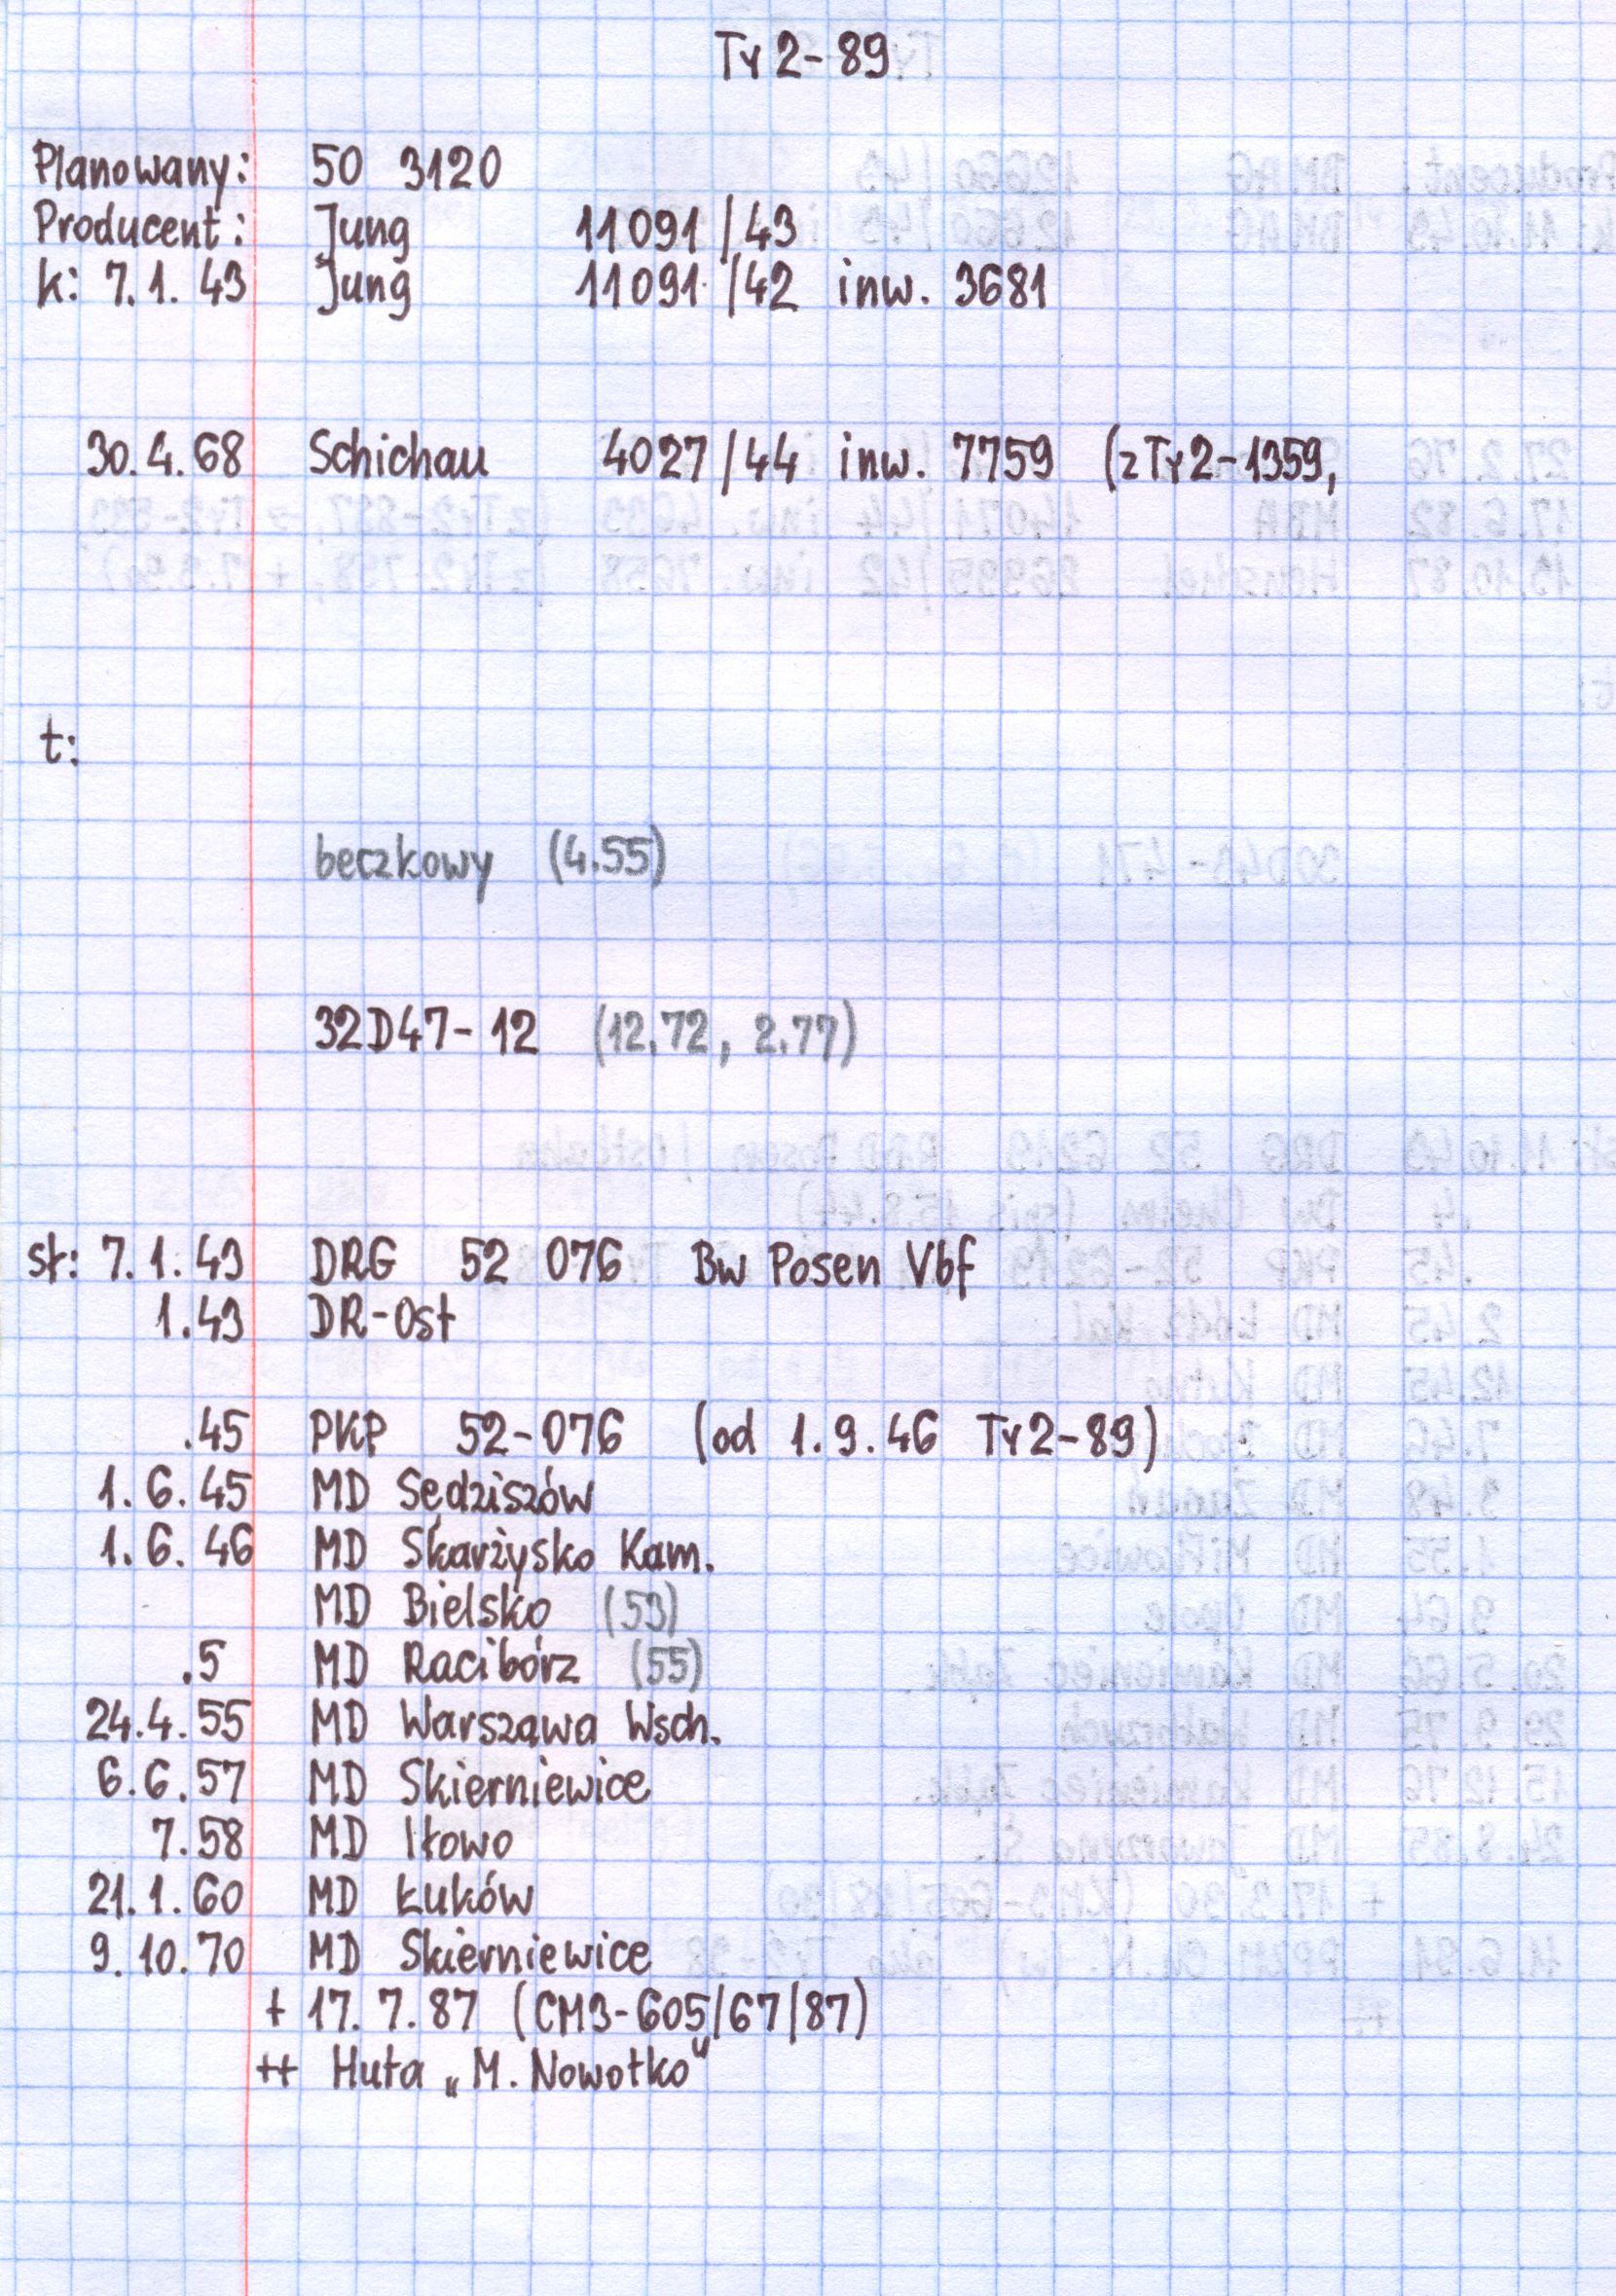 Ty2-89
Planowany: 50 3120
Producent: Jung 11091/43
k: 7.1.43 Jung 11091/42 inw. 3681
30.4.68 Schichau 4027/44 inw. 7759 (z Ty2-1359,
t:
beczkowy (4.55)
32D47-12 (12.72, 2.77)
st: 7.1.43 DRG 52 076 Bw Posen Vbf
1.43 DR-Ost
.45 PKP 52-076 (od 1.9.46 Ty2-89)
1.6.45 MD Sędziszów
1.6.46 MD Skarżysko Kam.
MD Bielsko (53)
.5 MD Racibórz (55)
24.4.55 MD Warszawa Wsch.
6.6.57 MD Skierniewice
7.58 MD Iłowo
21.1.60 MD Łuków
9.10.70 MD Skierniewice
+ 17.7.87 (CM3-605/67/87)
++ Huta „M. Nowotko"